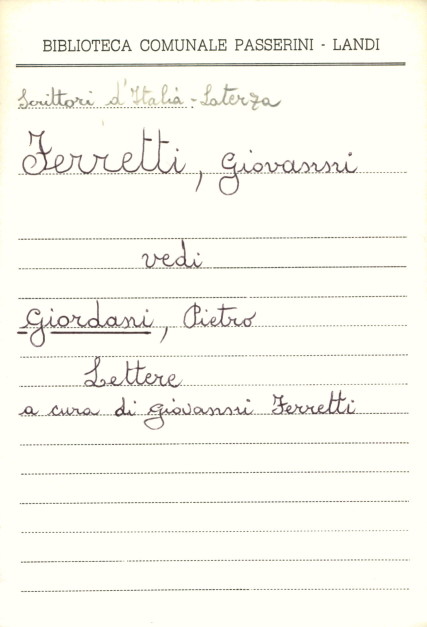 BIBLIOTECA COMUNALE PASSERINI - LANDI
Scrittori d'Italia - Laterza
Ferretti, Giovanni
vedi
Giordani, Pietro
Lettere
a cura di Giovanni Ferretti